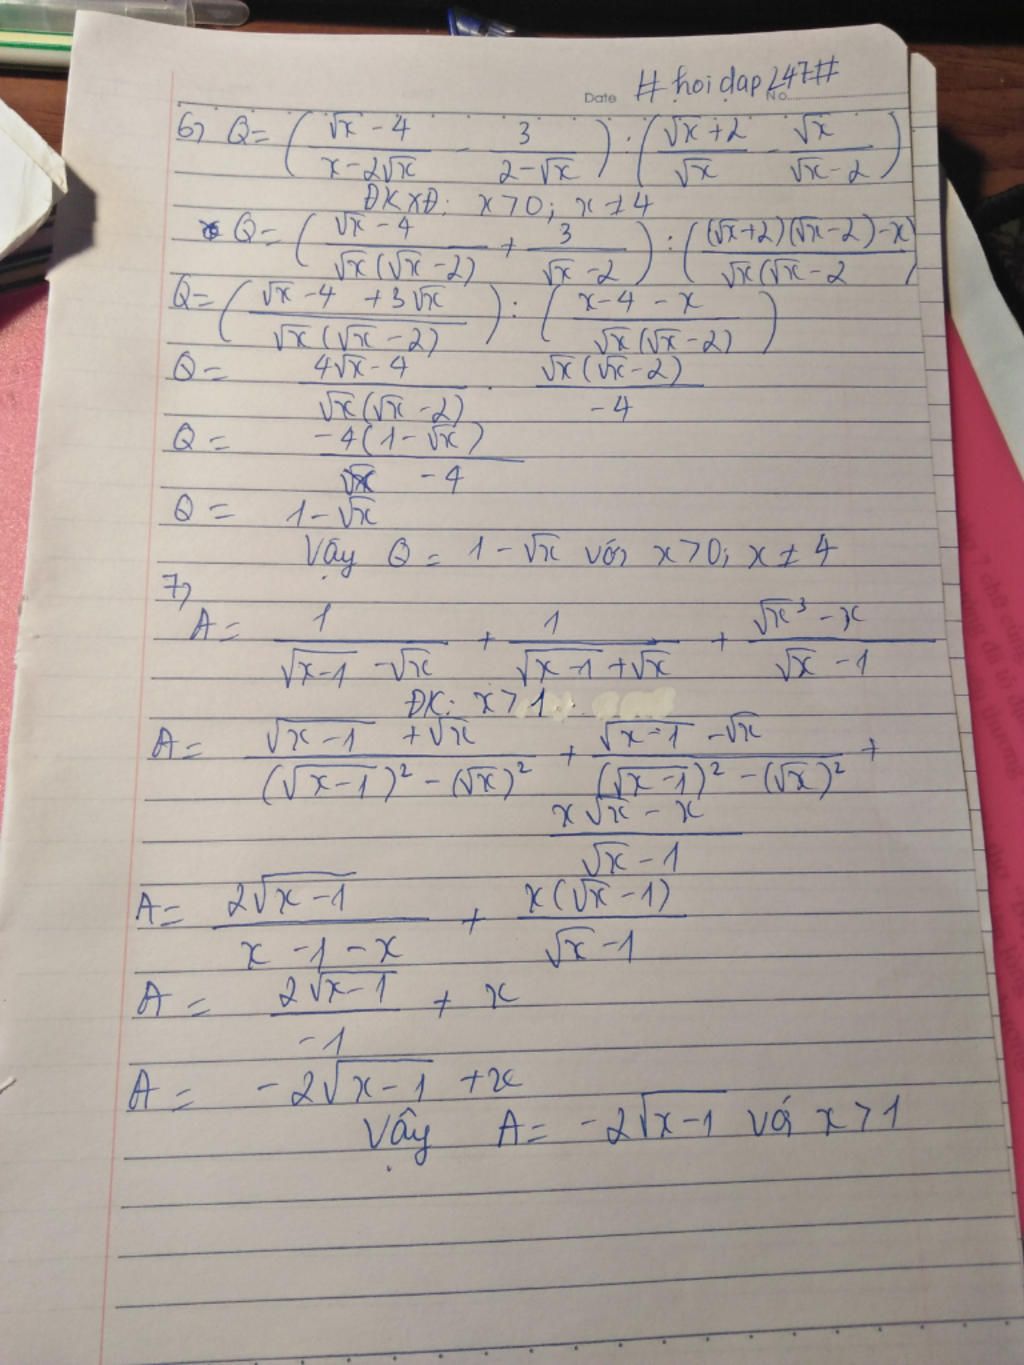 # hoidap247#
Date No.
6) Q = ( (√x - 4)/(x - 2√x) - 3/(2 - √x) ) : ( (√x + 2)/√x - √x/(√x - 2) )
ĐKXĐ: x > 0; x ≠ 4
Q = ( (√x - 4)/(√x(√x - 2)) + 3/(√x - 2) ) : ( ((√x + 2)(√x - 2) - x)/(√x(√x - 2 )
Q = ( (√x - 4 + 3√x)/(√x(√x - 2)) ) : ( (x - 4 - x)/(√x(√x - 2)) )
Q = (4√x - 4)/(√x(√x - 2)) . (√x(√x - 2))/(-4)
Q = (-4(1 - √x))/(-4)
Q = 1 - √x
Vậy Q = 1 - √x với x > 0; x ≠ 4
7)
A = 1/(√(x-1) - √x) + 1/(√(x-1) + √x) + (√x³ - x)/(√x - 1)
ĐK: x > 1
A = (√(x-1) + √x)/((√(x-1))² - (√x)²) + (√(x-1) - √x)/((√(x-1))² - (√x)²) +
(x√x - x)/(√x - 1)
A = (2√(x-1))/(x - 1 - x) + (x(√x - 1))/(√x - 1)
A = (2√(x-1))/(-1) + x
A = -2√(x-1) + x
Vậy A = -2√(x-1) và x > 1